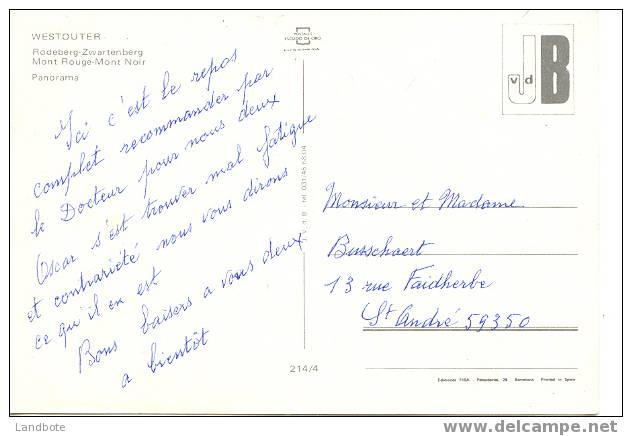 WESTOUTER
Rodeberg-Zwartenberg
Mont Rouge-Mont Noir
Panorama
Ici c'est le repos
complet recommander par
le Docteur pour nous deux
Oscar s'est trouver mal fatigue
et contrariété nous vous dirons
ce qu'il en est
Bons baisers a vous deux
a bientôt
ESCUDO DE ORO
J.V.D.B. tel. 031/45.68.04
214/4
J
v d B
Monsieur et Madame
Busschaert
13 rue Faidherbe
St André 59350
Printed in Spain
Landbote
www.delcampe.net